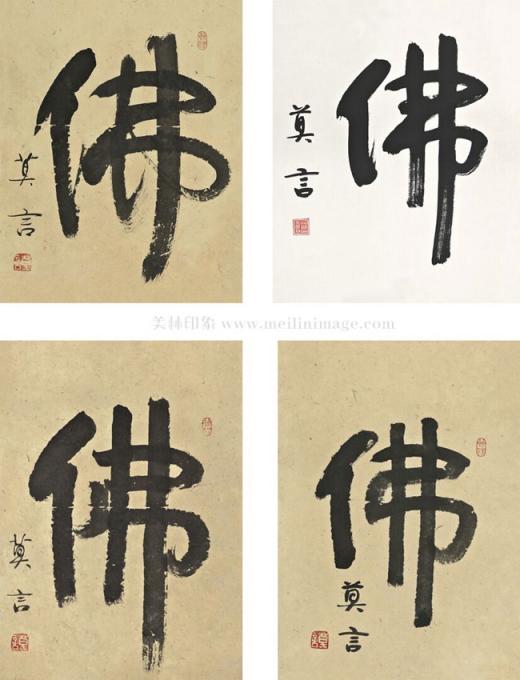 佛
莫言
佛
莫言
美林印象 www.meilinimage.com
佛
莫言
佛
莫言